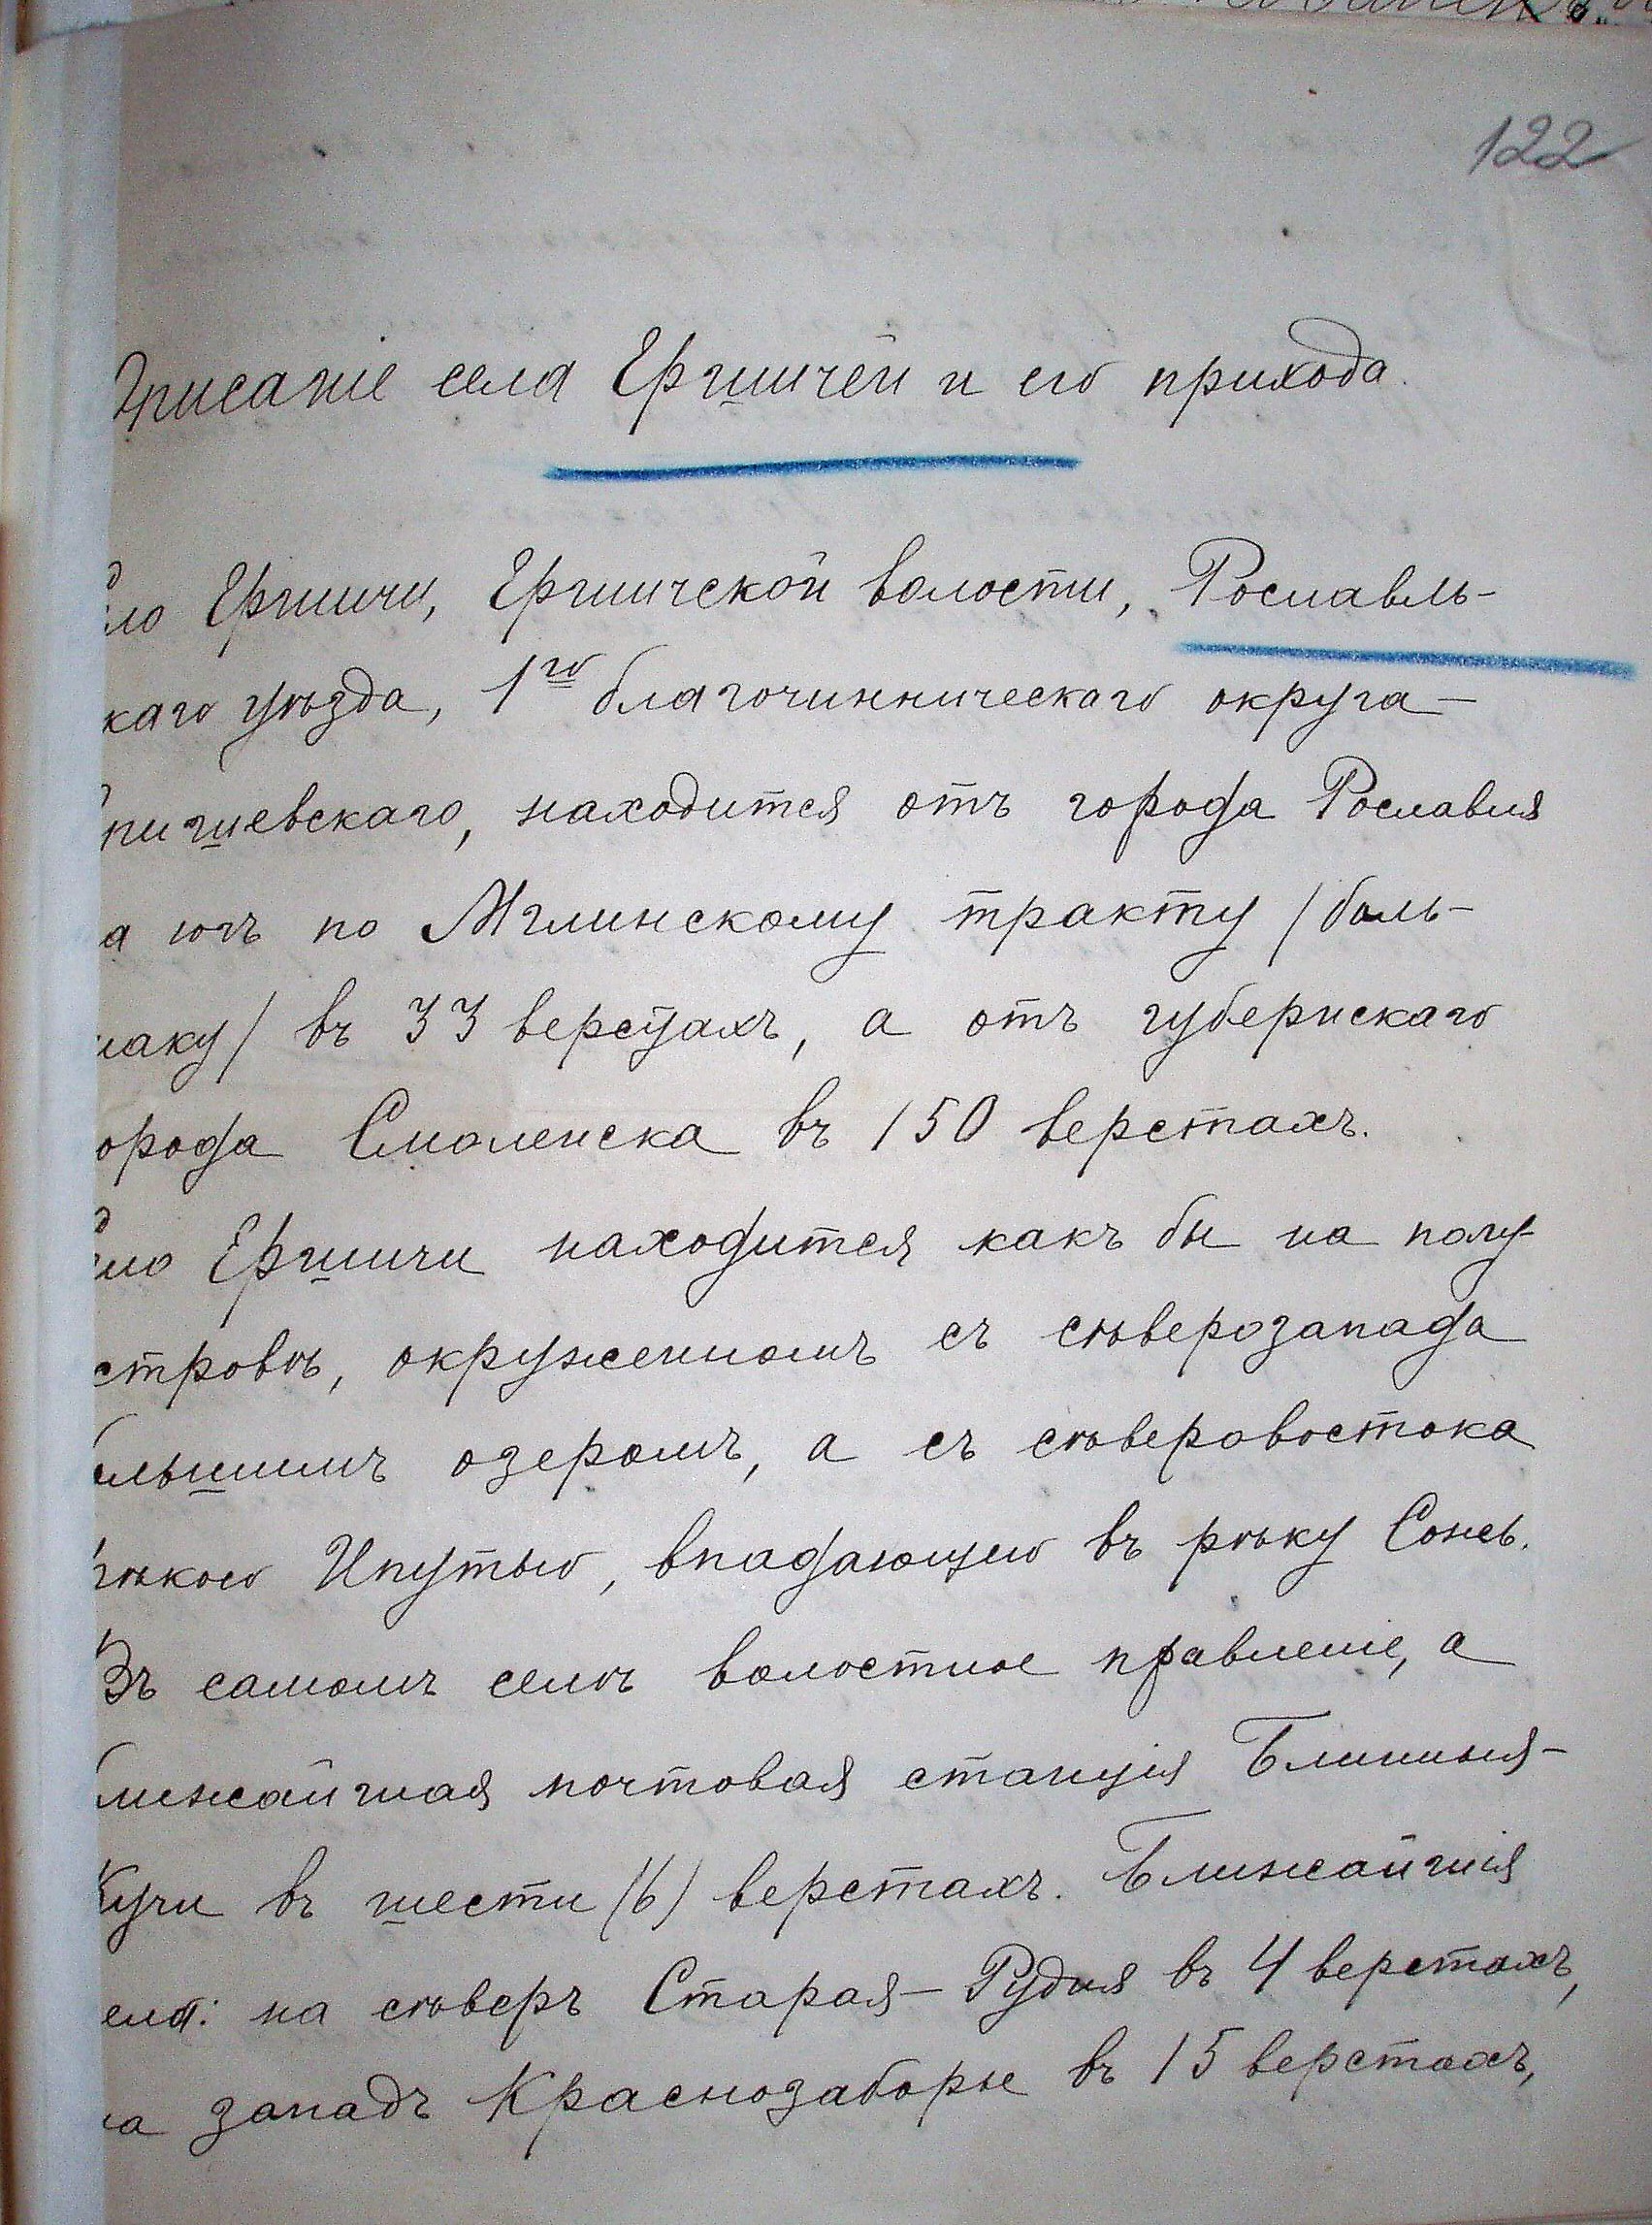 122
Описаніе села Ершичей и его прихода.
ло Ершичи, Ершичской волости, Рославль-
каго уѣзда, 1го благочинническаго округа—
пишевскаго, находится отъ города Рославля
а югъ по Мглинскому тракту /боль-
шаку/ въ 33 верстахъ, а отъ губернскаго
орода Смоленска въ 150 верстахъ.
ло Ершичи находится какъ бы на полу-
стровѣ, окруженномъ съ сѣверозапада
ольшимъ озеромъ, а съ сѣверовостока
рѣкою Ипутью, впадающею въ рѣку Сожь.
Въ самомъ селѣ волостное правленіе, а
ближайшая почтовая станція Блинныя-
Кучи въ шести (6) верстахъ. Ближайшія
ела: на сѣверъ Старая-Рудня въ 4 верстахъ,
на западъ Краснозаборье въ 15 верстахъ,